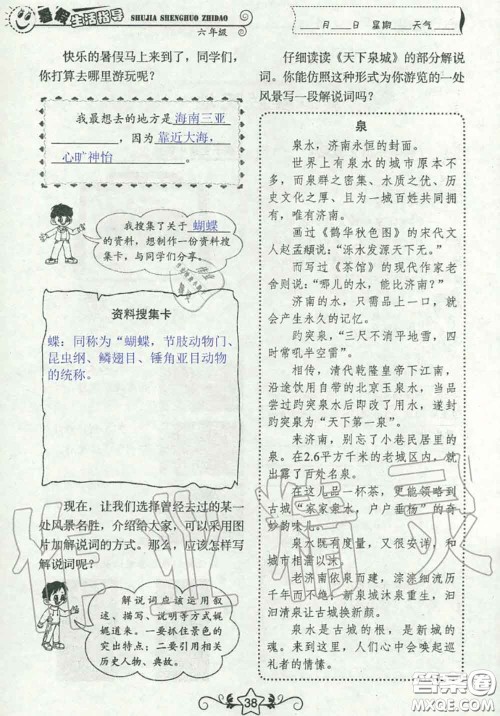 暑假生活指导
SHUJIA SHENGHUO ZHIDAO
六年级
___月___日 星期___天气___
快乐的暑假马上来到了，同学们，
你打算去哪里游玩呢？
我最想去的地方是 海南三亚
，因为 靠近大海，
心旷神怡 。
我搜集了关于 蝴蝶
的资料，想制作一份资料搜
集卡，与同学们分享。
资料搜集卡
蝶：同称为“蝴蝶，节肢动物门、
昆虫纲、鳞翅目、锤角亚目动物
的统称。
现在，让我们选择曾经去过的某一
处风景名胜，介绍给大家，可以采用图
片加解说词的方式。那么，应该怎样写
解说词呢？
解说词应该运用叙
述、描写、说明等方式娓
娓道来。一要抓住景色的
突出特点；二要引用相关
历史人物、典故。
仔细读读《天下泉城》的部分解说
词。你能仿照这种形式为你游览的一处
风景写一段解说词吗？
泉
泉水，济南永恒的封面。
世界上有泉水的城市原本不
多，而泉群之密集、水质之优、历
史文化之厚、且为一城百姓共同拥
有，唯有济南。
画过《鹊华秋色图》的宋代文
人赵孟頫说：“泺水发源天下无。”
而写过《茶馆》的现代作家老
舍则说：“哪儿的水，能比济南？”
济南的水，只需品上一口，就
会产生永久的记忆。
趵突泉，“三尺不消平地雪，四
时常吼半空雷”。
相传，清代乾隆皇帝下江南，
沿途饮用自带的北京玉泉水，当尝
过趵突泉水后即改用了水，遂封趵
突泉为“天下第一泉”。
来济南，别忘了小巷民居里的
泉。在2.6平方千米的老城区内，就
出露了百处名泉。
在这儿品一杯茶，更能领略到
古城“家家垂水，户户垂杨”的奇
妙韵味儿。
泉水既有度量，又很安详，和
城市相濡以沫。
老济南依泉而建，淙淙细流历
千年而不绝；新泉城沐泉重生，汩
汩清泉让古城换新颜。
泉水是古城的根，是新城的
魂。来到这里，人们心中会唤起巡
礼者的情愫。
38
作业精灵
答案圈
MXQE.COM